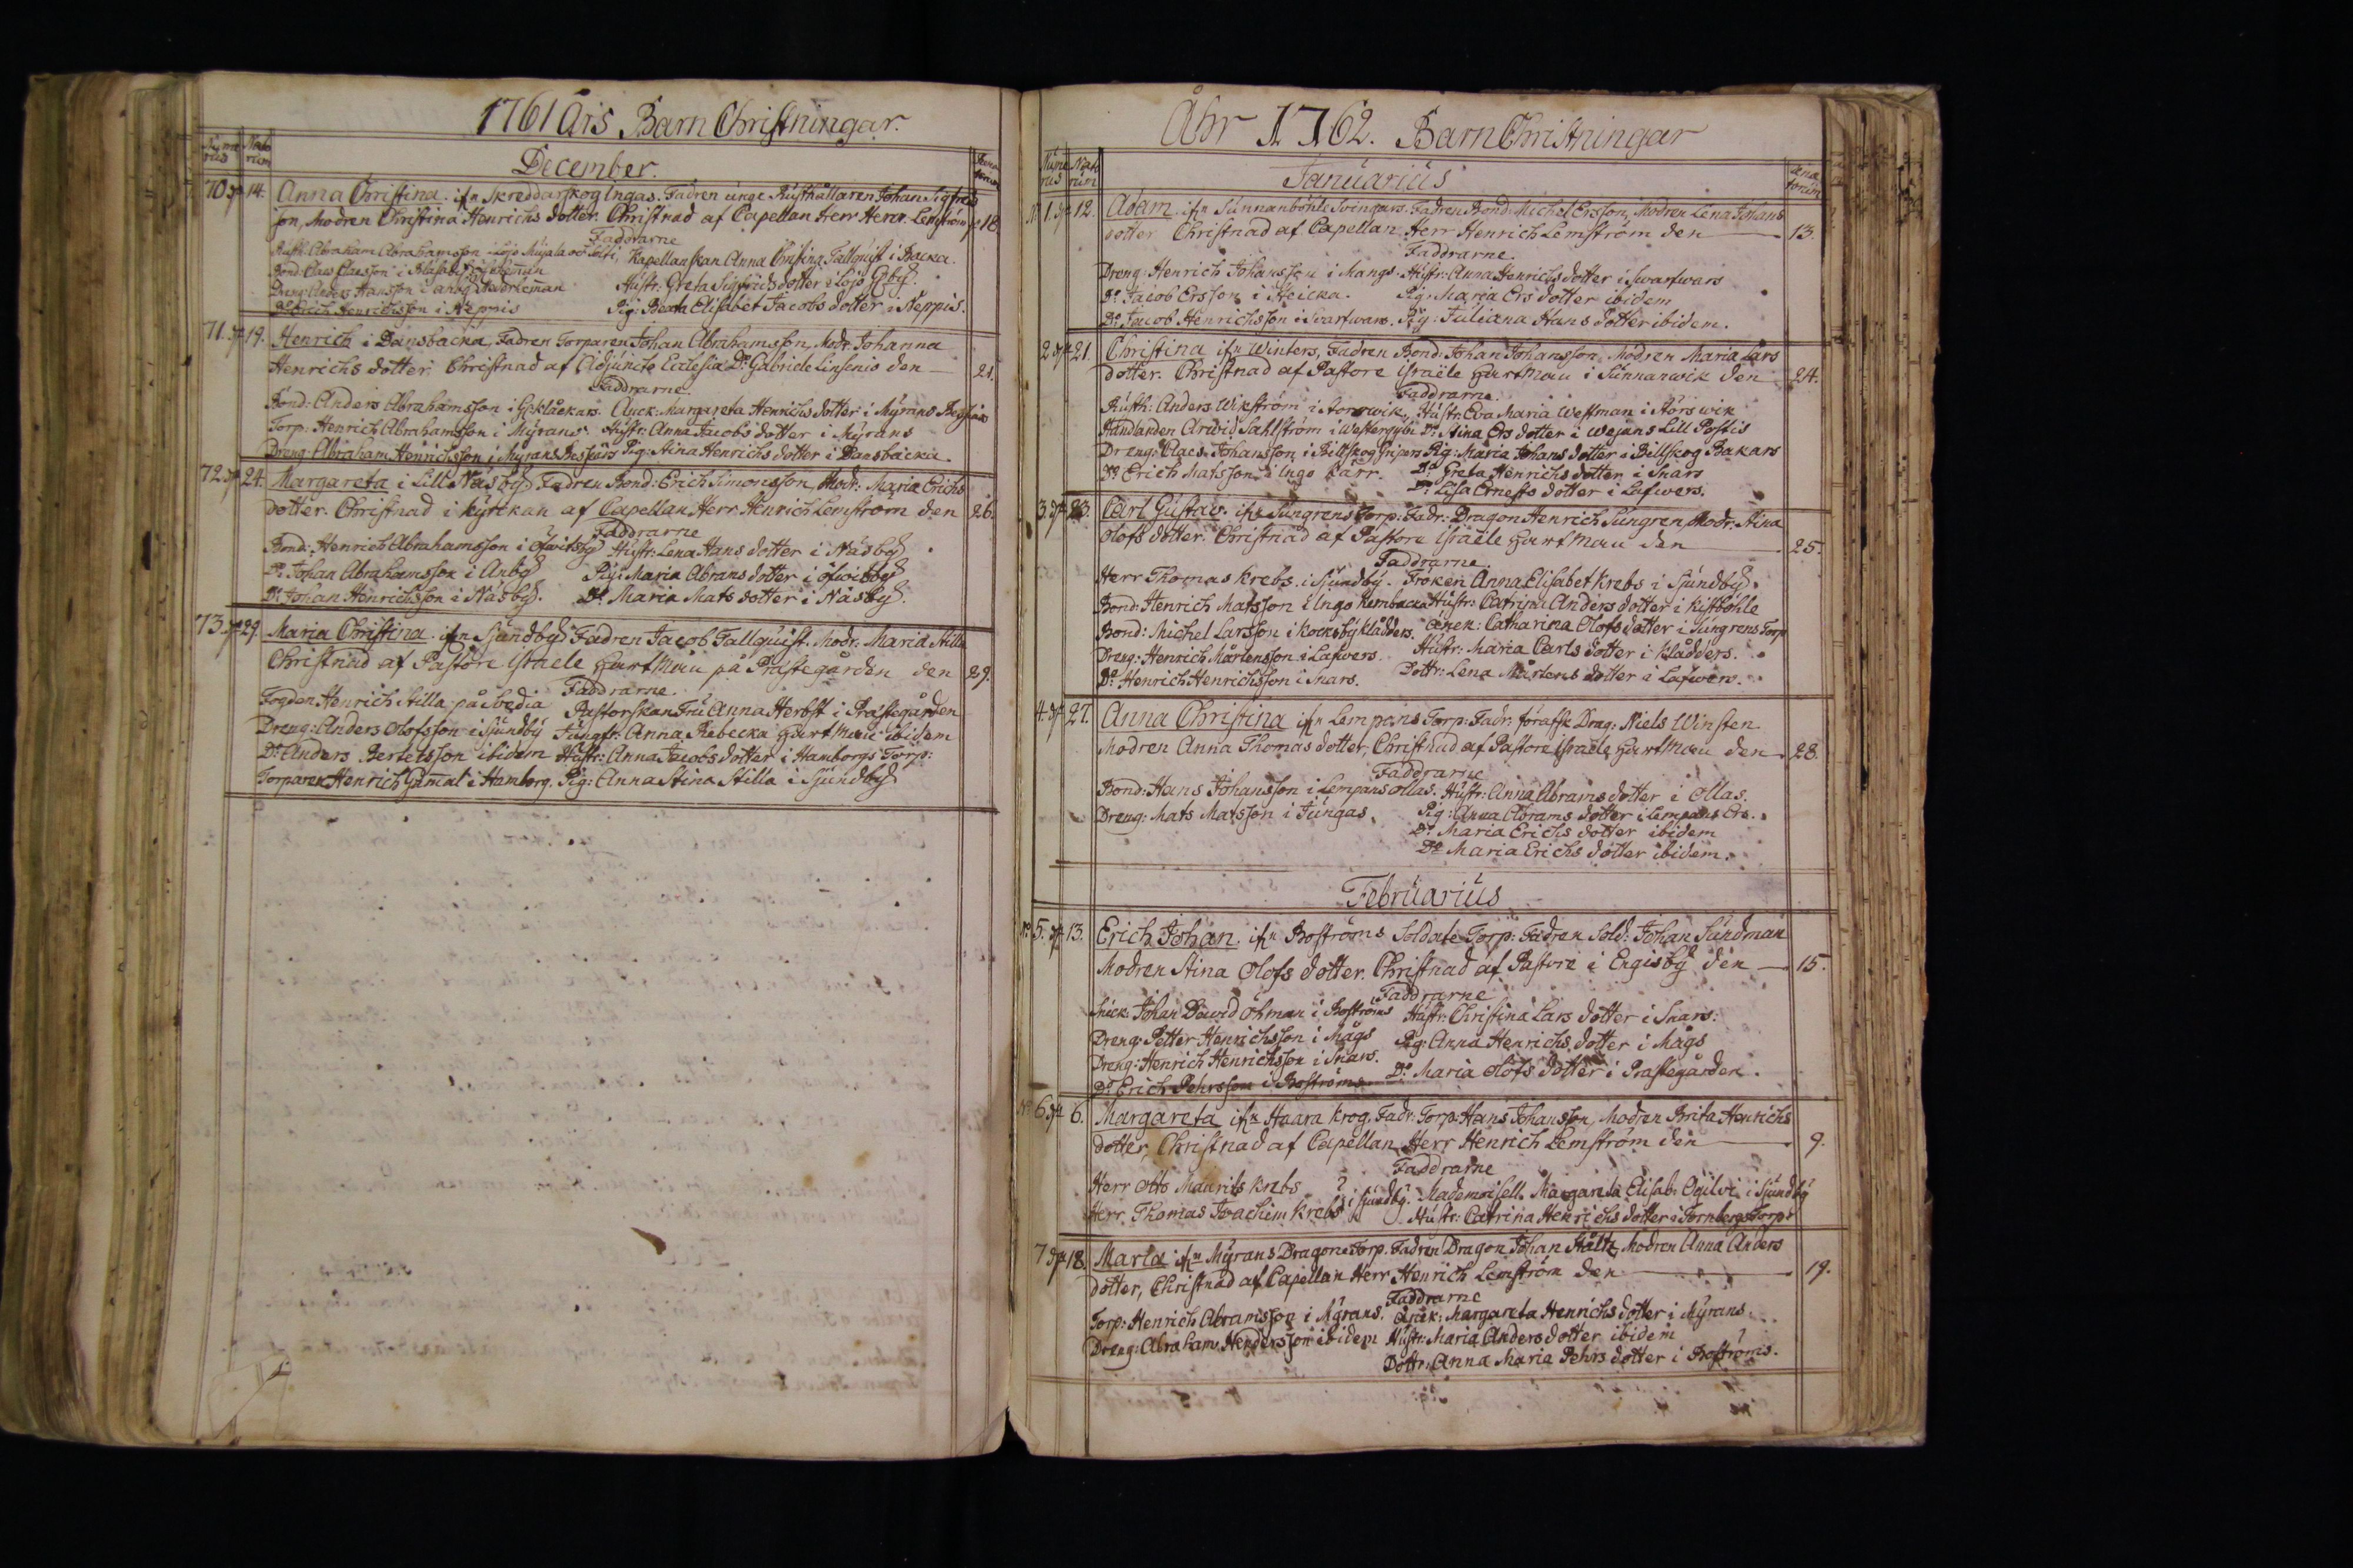 1761 Års Barn Christningar.
Nume Nato
rus rum
December.
70. 14. Anna Christina ifn Skreddarskog Ingas. Fadren unge Rusthållaren Johan Sigfreds
son, Modren Christina Henrichs dotter. Christnad af Capellan Herr Henr. Lemström 18.
Faddrarne
Rusth. Abraham Abrahamsson i Lojo, Kapellanskan Anna Christina Tallquist i Backa.
Bond: Claes Claesson i
Hustr. Greta Sigfrids dotter i Lojo Gåby.
Dreng: Anders Hansson i
Do Erich Henrichsson i Neppis Pig: Beata Elisabet Jacobs dotter i Neppis.
71. 19. Henrich i Dansbacka, Fadren Torparen Johan Abrahamsson, Modr. Johanna
Henrichs dotter. Christnad af Adjuncto Eclesiæ Do Gabriele Linsenio den 21.
Faddrarne
Bond: Anders Abrahamsson i Margareta Henrichs dotter i Myrans
Torp: Henrich Abrahamsson i Myrans Hustr: Anna Jacobs dotter i Myrans
Dreng: Abraham Henrichsson i Myrans Pig: Stina Henrichs dotter i Dansbacka.
72. 24. Margareta i Lill Näsby Fadren Bond: Erich Simonsson, Modr: Maria Erichs
dotter. Christnad i kyrckan af Capellan Herr Henrich Lemström den 26.
Faddrarne
Bond: Henrich Abrahamsson i Öfwitsby Hustr: Lena Hans dotter i Näsby
Do Johan Abrahamsson i Anby Pig: Maria Abrams dotter i Öfwitsby
Do Johan Henrichsson i Näsby. Do Maria Mats dotter i Näsby.
73. 29. Maria Christina ifn Sjundby Fadren Jacob Tallquist. Modr: Maria Stilla
Christnad af Pastore Israele Hartman på Prästegården den 29.
Faddrarne.
Fogden Henrich Stilla på Svidia Pastorskan Fru Anna Herbst i Prästegården
Dreng: Anders Olofsson i Sjundby Jungfr: Anna Rebecka Hartman ibidem
Do Anders Bertelsson ibidem Hustr: Anna Jacobs dotter i Hamborgs Torp:
Torparen Henrich Gam̄al i Hamborg. Pig: Anna Stina Stilla i Sjundby
Åhr 1762. Barn Christningar
Nume Nato
rus rum
Januarius
No 1. 12. Adam ifn Sunnanböhle Svingars. Fadren Bond: Michel Ersson, Modren Lena Johans
dotter Christnad af Capellan Herr Henrich Lemström den 13.
Faddrarne.
Dreng: Henrich Johansson i Mangs. Hustr: Anna Henrichs dotter i Svartwars
Do Jacob Ersson i Heicka. Pig: Maria Ers dotter ibidem
Do Jacob Henrichsson i Svartwars. Pig: Juliana Hans dotter ibidem.
2. 21. Christina ifn Winters, Fadren Bond: Johan Johansson, Modren Maria Lars
dotter. Christnad af Pastore Israële Hartman i Sunnanwik den 24.
Faddrarne.
Rusth: Anders Wikström i Störswik, Hustr. Eva Maria Westman i Störswik
Handlanden Arwid Sahlström i Westergylle Do Stina Ers dotter i Wejans Lill Postis
Dreng: Claes Johansson i Billskog Gripars Pig: Maria Johans dotter i Billskog Bakars
Do Erich Matsson i Ingo Kärr. Do Greta Henrichs dotter i Snars
Do Lisa Ernests dotter i Lafwers.
3. 23. Carl Gustav. ifn Sungrens Torp: Fadr: Dragon Henrich Sungren, Modr: Stina
Olofs dotter. Christnad af Pastore Israële Hartman den 25.
Faddrarne.
Herr Thomas Krebs. i Sjundby. Fröken Anna Elisabet Krebs i Sjundby.
Bond: Henrich Matsson i Ingo Rembacka Hustr: Catrina Anders dotter i Kistböhle
Bond: Michel Larsson i Kocksby Klådders. Änck: Catharina Olofs dotter i Sungrens Torp
Dreng: Henrich Mårtensson i Lafwers. Hustr: Maria Carls dotter i Klådders.
Do Henrich Henrichsson i Snars. Dottr: Lena Mårtens dotter i Lafwers.
4. 27. Anna Christina ifn Lempans Torp: Fadr: förafsk Drag: Niels Winsten
Modren Anna Thomas dotter, Christnad af Pastore Israele Hartman den 28.
Faddrarne
Bond: Hans Johansson i Lempans Ollas. Hustr: Anna Abrams dotter i Ollas.
Dreng: Mats Matsson i Jungas. Pig: Anna Abrams dotter i Lempans Ers.
Do Maria Erichs dotter ibidem
Do Maria Erichs dotter ibidem.
Februarius
No 5. 13. Erich Johan. ifn Boströms Soldate Torp: Fadren Sold: Johan Sundman
Modren Stina Olofs dotter. Christnad af Pastore i Engisby den 15.
Faddrarne
Snick: Johan David Öhman i Boströms Hustr: Christina Lars dotter i Snars:
Dreng: Petter Henrichsson i Mågs Pig: Anna Henrichs dotter i Mågs
Dreng: Henrich Henrichsson i Snars. Do Maria Olofs dotter i Prästegården.
Do Erich Pehrsson i Boströms
No 6. 6. Margareta ifn Haara Krog, Fadr: Torp: Hans Johansson, Modren Brita Henrichs
dotter, Christnad af Capellan Herr Henrich Lemström den 9.
Faddrarne
Herr Otto Maurits Krebs
i Sjundby. Mademoisell. Margareta Elisab: Ogilvi i Sjundby
Herr Thomas Joachim Krebs Hustr: Catrina Henrichs dotter i Tornbergs Torp:
7 18. Maria ifn Myrans Dragone Torp. Fadren Dragon Johan Stålts, Modren Anna Anders
dotter, Christnad af Capellan Herr Henrich Lemström den 19.
Faddrarne
Torp: Henrich Abramsson i Myrans. Änck: Margareta Henrichs dotter i Myrans.
Dreng: Abraham Hendersson ibidem Hustr: Maria Anders dotter ibidem
Dottr: Anna Maria Pehrs dotter i Boströms.